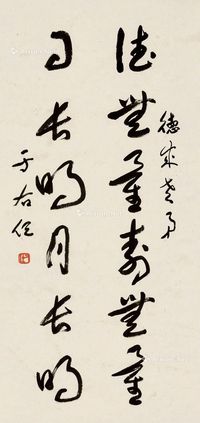 德無量壽無量
日長明月長明
德 老弟
于右任